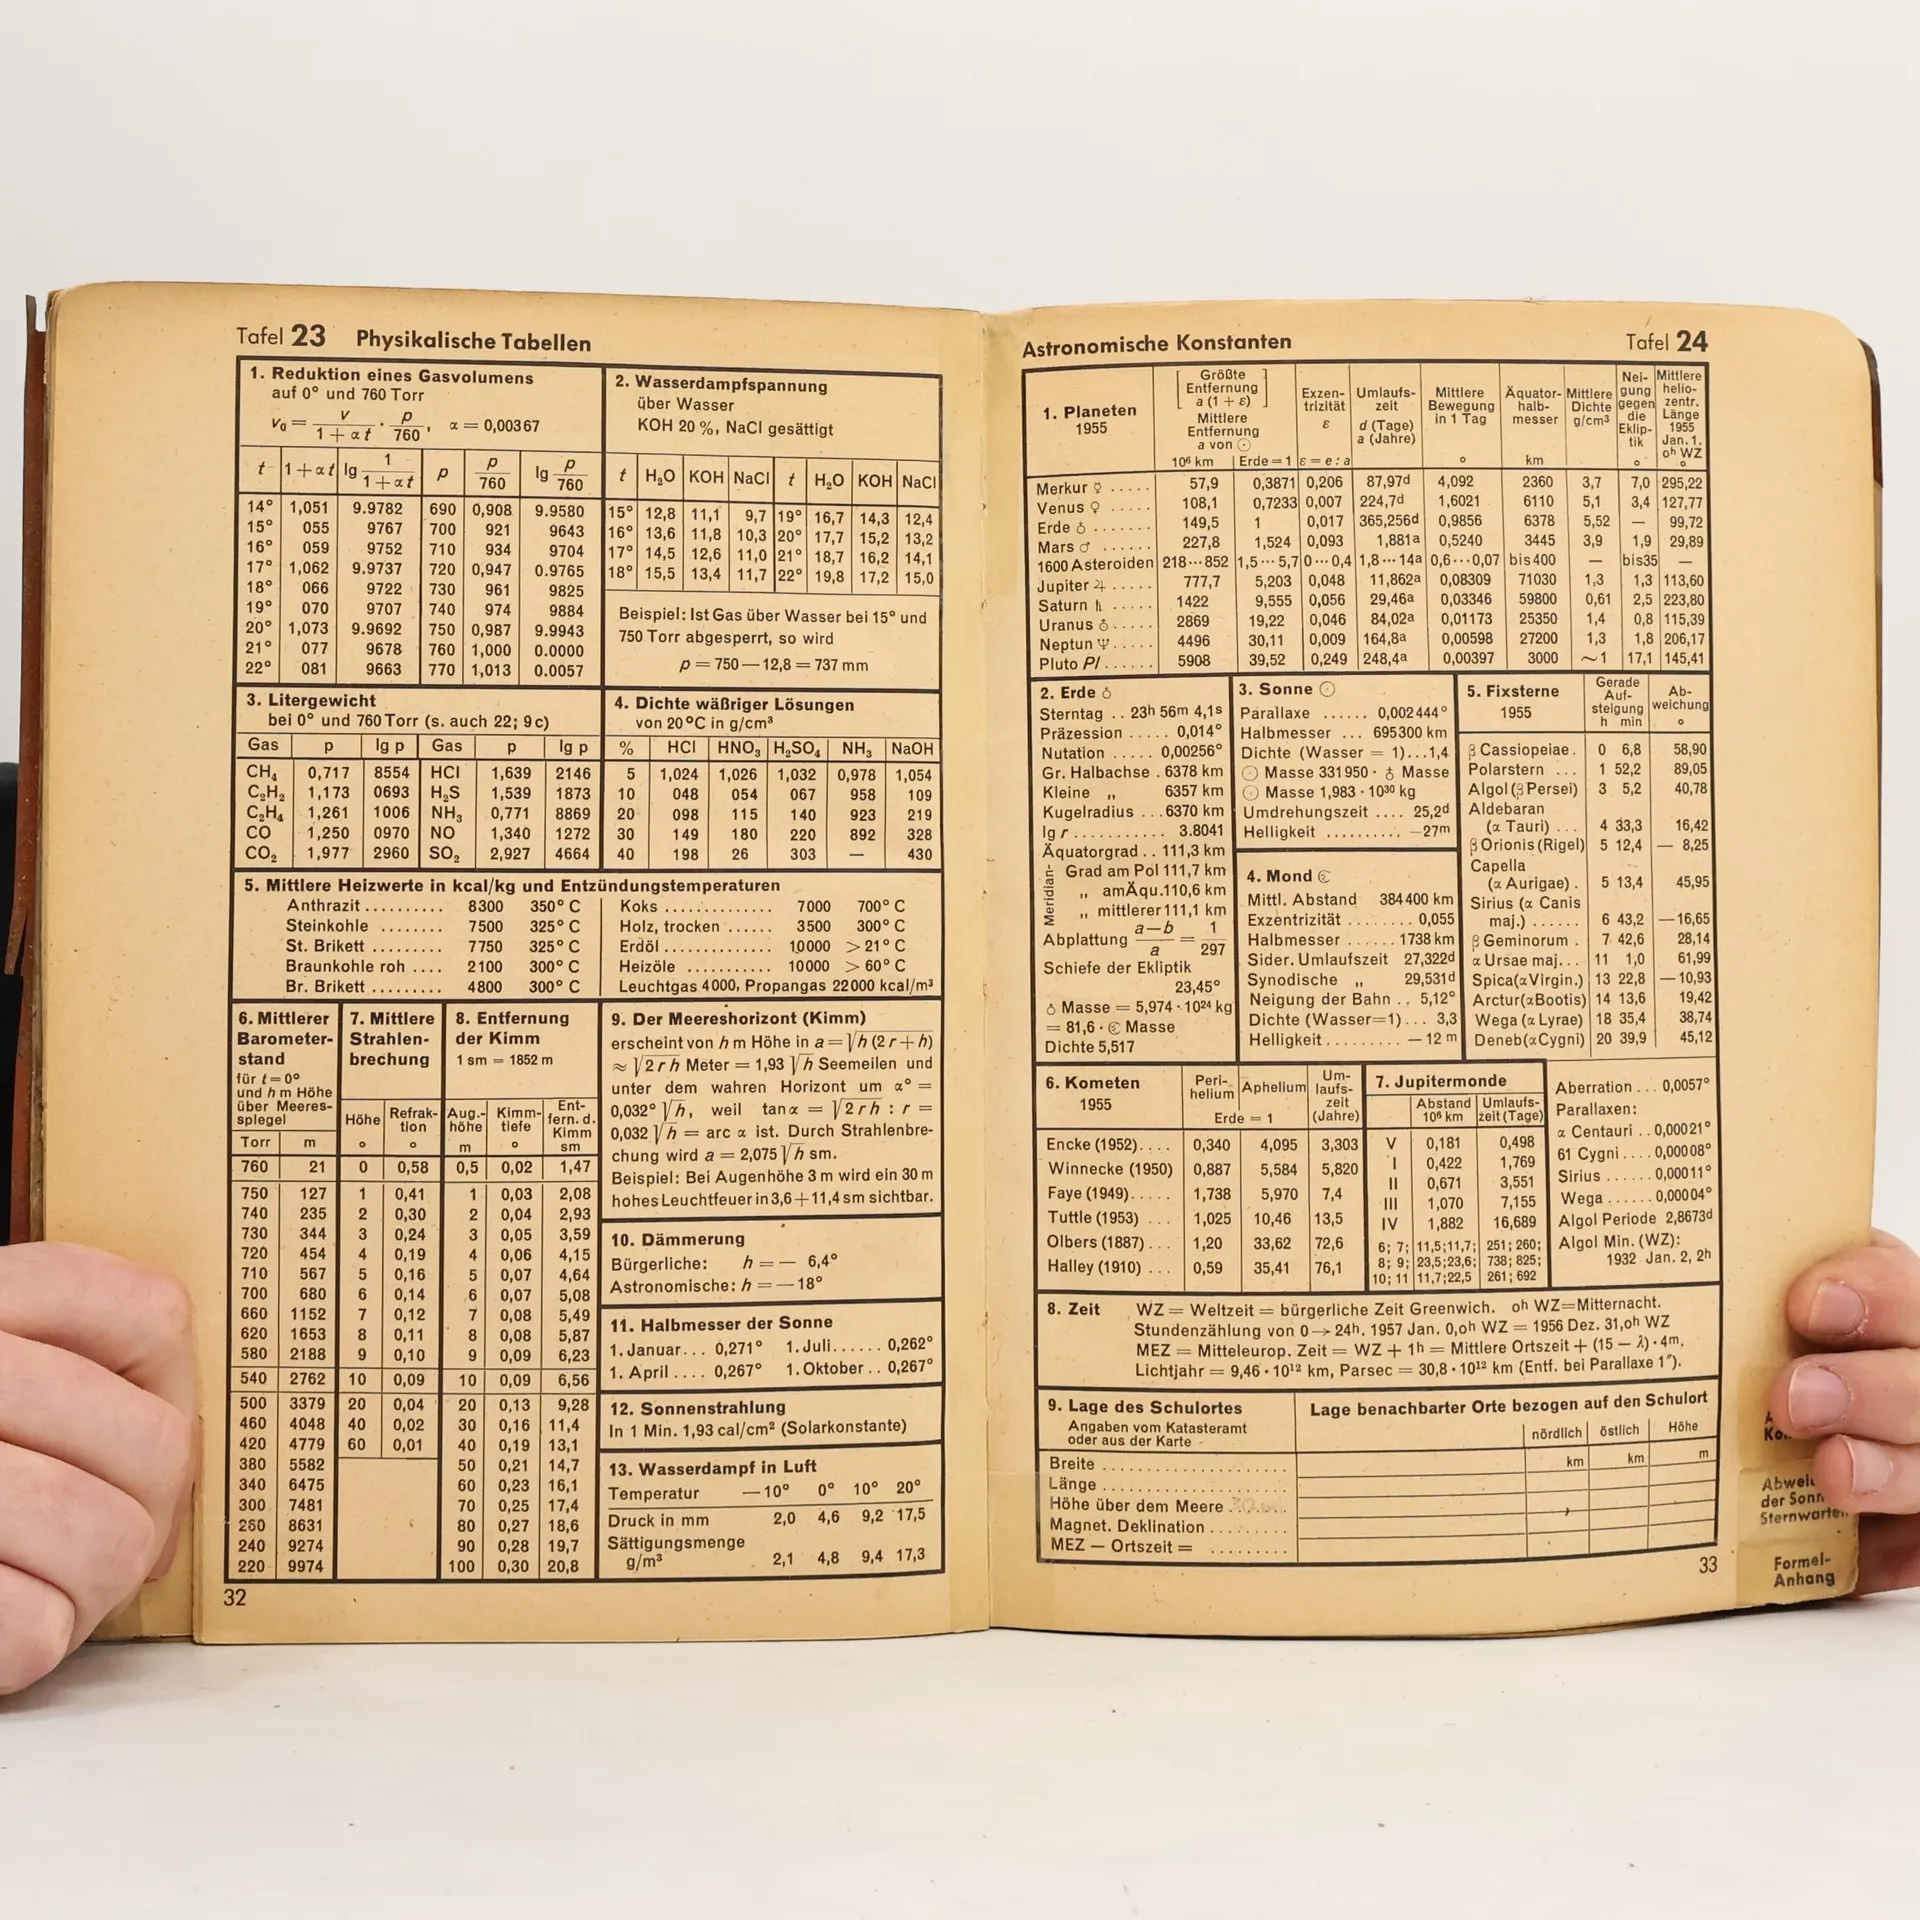 Tafel 23 Physikalische Tabellen
1. Reduktion eines Gasvolumens
auf 0° und 760 Torr
v₀ = v / (1 + αt) · p / 760, α = 0,00367
t 1+αt lg 1/(1+αt) p p/760 lg p/760
14° 1,051 9.9782 690 0,908 9.9580
15° 055 9767 700 921 9643
16° 059 9752 710 934 9704
17° 1,062 9.9737 720 0,947 0.9765
18° 066 9722 730 961 9825
19° 070 9707 740 974 9884
20° 1,073 9.9692 750 0,987 9.9943
21° 077 9678 760 1,000 0.0000
22° 081 9663 770 1,013 0.0057
2. Wasserdampfspannung
über Wasser
KOH 20 %, NaCl gesättigt
t H₂O KOH NaCl t H₂O KOH NaCl
15° 12,8 11,1 9,7 19° 16,7 14,3 12,4
16° 13,6 11,8 10,3 20° 17,7 15,2 13,2
17° 14,5 12,6 11,0 21° 18,7 16,2 14,1
18° 15,5 13,4 11,7 22° 19,8 17,2 15,0
Beispiel: Ist Gas über Wasser bei 15° und
750 Torr abgesperrt, so wird
p = 750 — 12,8 = 737 mm
3. Litergewicht
bei 0° und 760 Torr (s. auch 22; 9c)
Gas p lg p Gas p lg p
CH₄ 0,717 8554 HCl 1,639 2146
C₂H₂ 1,173 0693 H₂S 1,539 1873
C₂H₄ 1,261 1006 NH₃ 0,771 8869
CO 1,250 0970 NO 1,340 1272
CO₂ 1,977 2960 SO₂ 2,927 4664
4. Dichte wäßriger Lösungen
von 20°C in g/cm³
% HCl HNO₃ H₂SO₄ NH₃ NaOH
5 1,024 1,026 1,032 0,978 1,054
10 048 054 067 958 109
20 098 115 140 923 219
30 149 180 220 892 328
40 198 26 303 — 430
5. Mittlere Heizwerte in kcal/kg und Entzündungstemperaturen
Anthrazit .......... 8300 350° C
Steinkohle ........ 7500 325° C
St. Brikett ......... 7750 325° C
Braunkohle roh .... 2100 300° C
Br. Brikett ......... 4800 300° C
Koks .............. 7000 700° C
Holz, trocken ...... 3500 300° C
Erdöl .............. 10000 > 21° C
Heizöle ........... 10000 > 60° C
Leuchtgas 4000, Propangas 22000 kcal/m³
6. Mittlerer
Barometer-
stand
für t = 0°
und h m Höhe
über Meeres-
spiegel
Torr m
760 21
750 127
740 235
730 344
720 454
710 567
700 680
660 1152
620 1653
580 2188
540 2762
500 3379
460 4048
420 4779
380 5582
340 6475
300 7481
260 8631
240 9274
220 9974
7. Mittlere
Strahlen-
brechung
Höhe Refrak-
tion
° °
0 0,58
1 0,41
2 0,30
3 0,24
4 0,19
5 0,16
6 0,14
7 0,12
8 0,11
9 0,10
10 0,09
20 0,04
40 0,02
60 0,01
8. Entfernung
der Kimm
1 sm = 1852 m
Aug.-
höhe Kimm-
tiefe Ent-
fern. d.
Kimm
m ° sm
0,5 0,02 1,47
1 0,03 2,08
2 0,04 2,93
3 0,05 3,59
4 0,06 4,15
5 0,07 4,64
6 0,07 5,08
7 0,08 5,49
8 0,08 5,87
9 0,09 6,23
10 0,09 6,56
20 0,13 9,28
30 0,16 11,4
40 0,19 13,1
50 0,21 14,7
60 0,23 16,1
70 0,25 17,4
80 0,27 18,6
90 0,28 19,7
100 0,30 20,8
9. Der Meereshorizont (Kimm)
erscheint von h m Höhe in a = √h (2 r + h)
≈ √2 r h Meter = 1,93 √h Seemeilen und
unter dem wahren Horizont um α° =
0,032° √h, weil tan α = √2 r h : r =
0,032 √h = arc α ist. Durch Strahlenbre-
chung wird a = 2,075 √h sm.
Beispiel: Bei Augenhöhe 3 m wird ein 30 m
hohes Leuchtfeuer in 3,6 + 11,4 sm sichtbar.
10. Dämmerung
Bürgerliche: h = — 6,4°
Astronomische: h = — 18°
11. Halbmesser der Sonne
1. Januar... 0,271° 1. Juli...... 0,262°
1. April .... 0,267° 1. Oktober .. 0,267°
12. Sonnenstrahlung
In 1 Min. 1,93 cal/cm² (Solarkonstante)
13. Wasserdampf in Luft
Temperatur — 10° 0° 10° 20°
Druck in mm 2,0 4,6 9,2 17,5
Sättigungsmenge
g/m³ 2,1 4,8 9,4 17,3
32
Astronomische Konstanten Tafel 24
1. Planeten
1955
[Größte
Entfernung
a (1 + ε)]
Mittlere
Entfernung
a von ☉
10⁶ km Erde = 1
Exzen-
trizität
ε
ε = e : a
Umlaufs-
zeit
d (Tage)
a (Jahre)
Mittlere
Bewegung
in 1 Tag
°
Äquator-
halb-
messer
km
Mittlere
Dichte
g/cm³
Nei-
gung
gegen
die
Eklip-
tik
°
Mittlere
helio-
zentr.
Länge
1955
Jan. 1.
0h WZ
°
Merkur ☿ ..... 57,9 0,3871 0,206 87,97d 4,092 2360 3,7 7,0 295,22
Venus ♀ ..... 108,1 0,7233 0,007 224,7d 1,6021 6110 5,1 3,4 127,77
Erde ♁ ....... 149,5 1 0,017 365,256d 0,9856 6378 5,52 — 99,72
Mars ♂ ...... 227,8 1,524 0,093 1,881a 0,5240 3445 3,9 1,9 29,89
1600 Asteroiden 218···852 1,5···5,7 0···0,4 1,8···14a 0,6···0,07 bis 400 — bis35 —
Jupiter ♃ ..... 777,7 5,203 0,048 11,862a 0,08309 71030 1,3 1,3 113,60
Saturn ♄ ..... 1422 9,555 0,056 29,46a 0,03346 59800 0,61 2,5 223,80
Uranus ♅ ..... 2869 19,22 0,046 84,02a 0,01173 25350 1,4 0,8 115,39
Neptun ♆ ..... 4496 30,11 0,009 164,8a 0,00598 27200 1,3 1,8 206,17
Pluto Pl ...... 5908 39,52 0,249 248,4a 0,00397 3000 ~1 17,1 145,41
2. Erde ♁
Sterntag .. 23h 56m 4,1s
Präzession ..... 0,014°
Nutation ..... 0,00256°
Gr. Halbachse . 6378 km
Kleine „ 6357 km
Kugelradius ... 6370 km
lg r ........... 3.8041
Äquatorgrad .. 111,3 km
Meridian-
Grad am Pol 111,7 km
„ am Äqu. 110,6 km
„ mittlerer 111,1 km
Abplattung (a—b)/a = 1/297
Schiefe der Ekliptik
23,45°
♁ Masse = 5,974 · 10²⁴ kg
= 81,6 · ☾ Masse
Dichte 5,517
3. Sonne ☉
Parallaxe ...... 0,002444°
Halbmesser ... 695300 km
Dichte (Wasser = 1)...1,4
☉ Masse 331950 · ♁ Masse
☉ Masse 1,983 · 10³⁰ kg
Umdrehungszeit .... 25,2d
Helligkeit .......... —27m
4. Mond ☾
Mittl. Abstand 384400 km
Exzentrizität ........ 0,055
Halbmesser ...... 1738 km
Sider. Umlaufszeit 27,322d
Synodische „ 29,531d
Neigung der Bahn .. 5,12°
Dichte (Wasser=1)... 3,3
Helligkeit ......... — 12 m
5. Fixsterne
1955
Gerade
Auf-
steigung
h min
Ab-
weichung
°
β Cassiopeiae . 0 6,8 58,90
Polarstern ... 1 52,2 89,05
Algol (β Persei) 3 5,2 40,78
Aldebaran
(α Tauri) ... 4 33,3 16,42
β Orionis (Rigel) 5 12,4 — 8,25
Capella
(α Aurigae) . 5 13,4 45,95
Sirius (α Canis
maj.) ...... 6 43,2 —16,65
β Geminorum . 7 42,6 28,14
α Ursae maj... 11 1,0 61,99
Spica (α Virgin.) 13 22,8 —10,93
Arctur (α Bootis) 14 13,6 19,42
Wega (α Lyrae) 18 35,4 38,74
Deneb (α Cygni) 20 39,9 45,12
6. Kometen
1955
Peri-
helium Aphelium
Erde = 1
Um-
laufs-
zeit
(Jahre)
Encke (1952).... 0,340 4,095 3,303
Winnecke (1950) 0,887 5,584 5,820
Faye (1949)..... 1,738 5,970 7,4
Tuttle (1953) ... 1,025 10,46 13,5
Olbers (1887)... 1,20 33,62 72,6
Halley (1910) ... 0,59 35,41 76,1
7. Jupitermonde
Abstand
10⁶ km Umlaufs-
zeit (Tage)
V 0,181 0,498
I 0,422 1,769
II 0,671 3,551
III 1,070 7,155
IV 1,882 16,689
6; 7; 11,5; 11,7; 251; 260;
8; 9; 23,5; 23,6; 738; 825;
10; 11 11,7; 22,5 261; 692
Aberration ... 0,0057°
Parallaxen:
α Centauri .. 0,00021°
61 Cygni .... 0,00008°
Sirius ....... 0,00011°
Wega ...... 0,00004°
Algol Periode 2,8673d
Algol Min. (WZ):
1932 Jan. 2, 2h
8. Zeit WZ = Weltzeit = bürgerliche Zeit Greenwich. 0h WZ = Mitternacht.
Stundenzählung von 0 → 24h. 1957 Jan. 0,0h WZ = 1956 Dez. 31,0h WZ
MEZ = Mitteleurop. Zeit = WZ + 1h = Mittlere Ortszeit + (15 — λ) · 4m.
Lichtjahr = 9,46 · 10¹² km, Parsec = 30,8 · 10¹² km (Entf. bei Parallaxe 1″).
9. Lage des Schulortes
Angaben vom Katasteramt
oder aus der Karte
Lage benachbarter Orte bezogen auf den Schulort
nördlich östlich Höhe
km km m
Breite ......................
Länge ......................
Höhe über dem Meere
Magnet. Deklination .........
MEZ — Ortszeit = .........
33
Abwei
der Sonn
Sternwarte
Formel-
Anhang